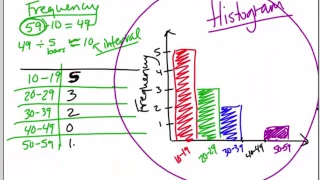 Frequency
59-10 = 49
49 ÷ 5 ≈ 10 interval
bars
10-19 5
20-29 3
30-39 2
40-49 0
50-59 1
Histogram
Frequency
5
4
3
2
1
10-19 20-29 30-39 40-49 50-59